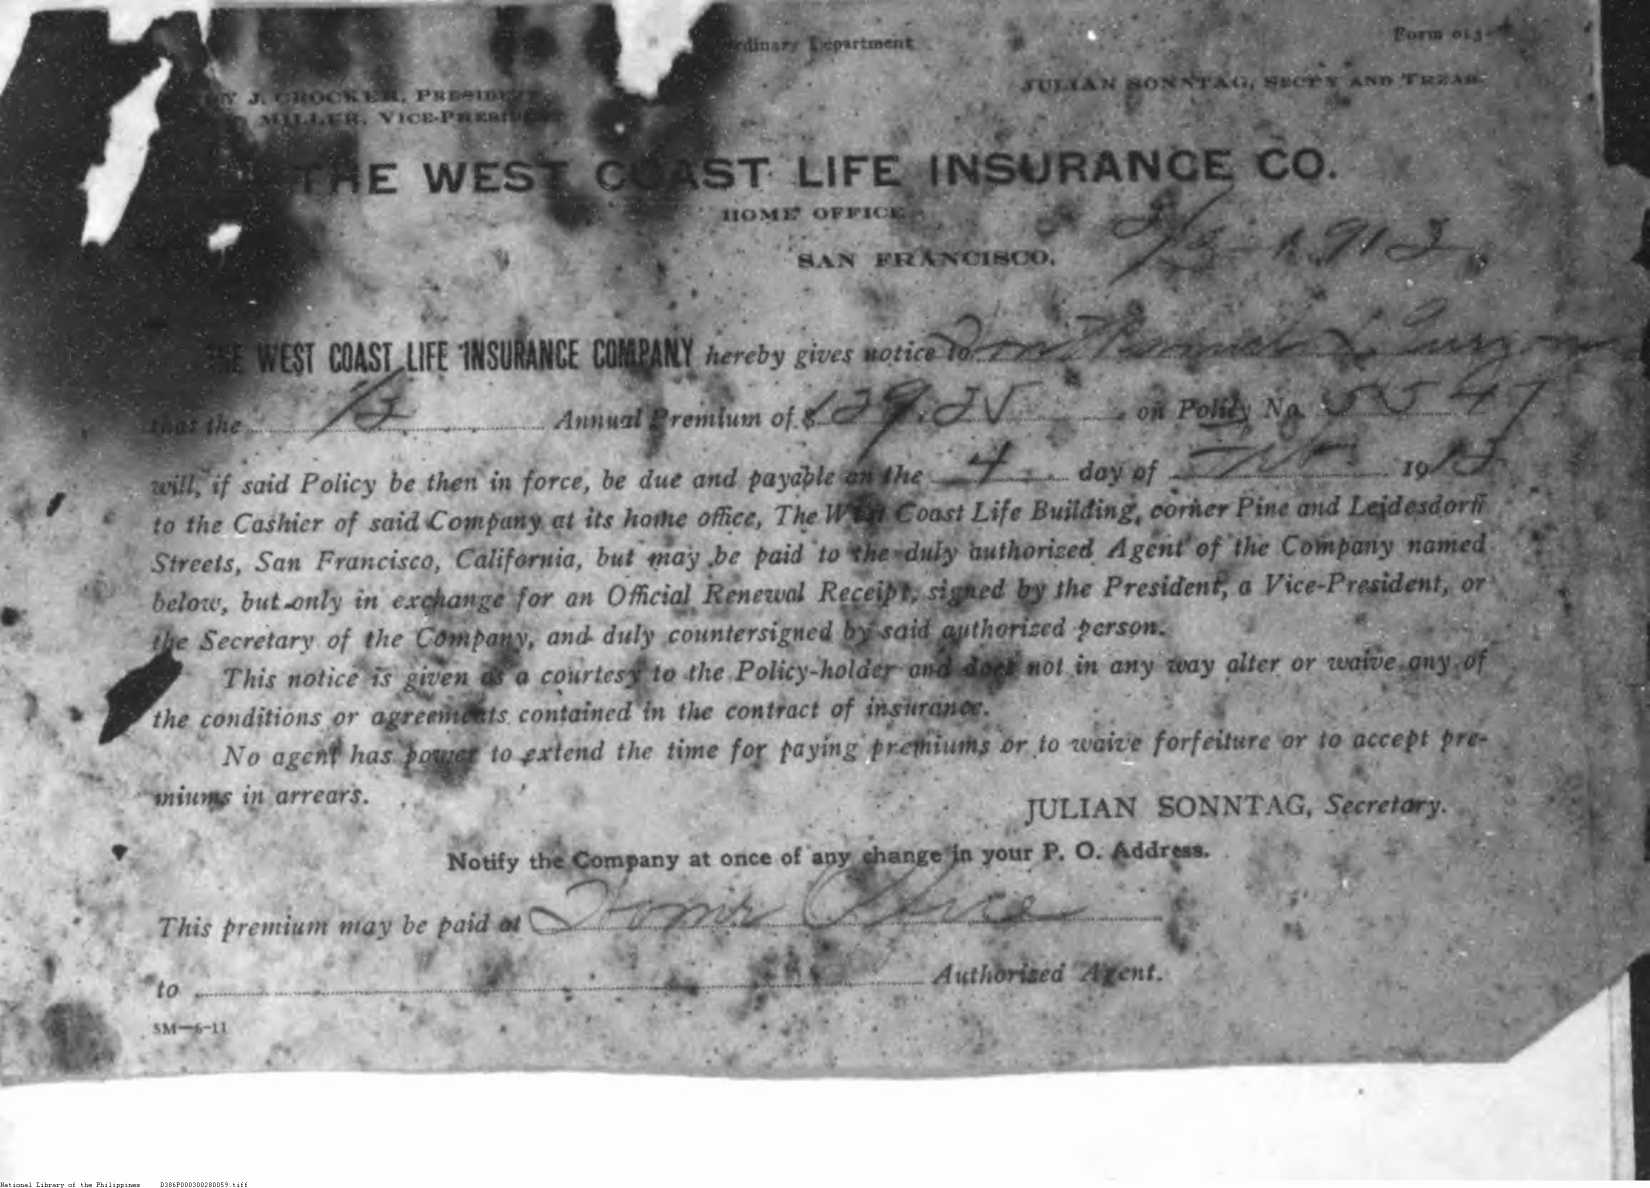 Ordinary Department
Form 013
Y J. CROCKER, PRESIDENT
JULIAN SONNTAG, SECT'Y AND TREAS.
MILLER, VICE-PRESIDENT
THE WEST COAST LIFE INSURANCE CO.
HOME OFFICE
SAN FRANCISCO, 1912
THE WEST COAST LIFE INSURANCE COMPANY hereby gives notice to
that the 1/2 Annual Premium of $129.25 on Policy No. 5547
will, if said Policy be then in force, be due and payable on the 4 day of Feb 19
to the Cashier of said Company at its home office, The West Coast Life Building, corner Pine and Leidesdorff
Streets, San Francisco, California, but may be paid to the duly authorized Agent of the Company named
below, but only in exchange for an Official Renewal Receipt, signed by the President, a Vice-President, or
the Secretary of the Company, and duly countersigned by said authorized person.
This notice is given as a courtesy to the Policy-holder and does not in any way alter or waive any of
the conditions or agreements contained in the contract of insurance.
No agent has power to extend the time for paying premiums or to waive forfeiture or to accept pre-
miums in arrears.
JULIAN SONNTAG, Secretary.
Notify the Company at once of any change in your P. O. Address.
This premium may be paid at Home Office
to Authorized Agent.
5M—6-11
National Library of the Philippines D386P000300280059.tiff